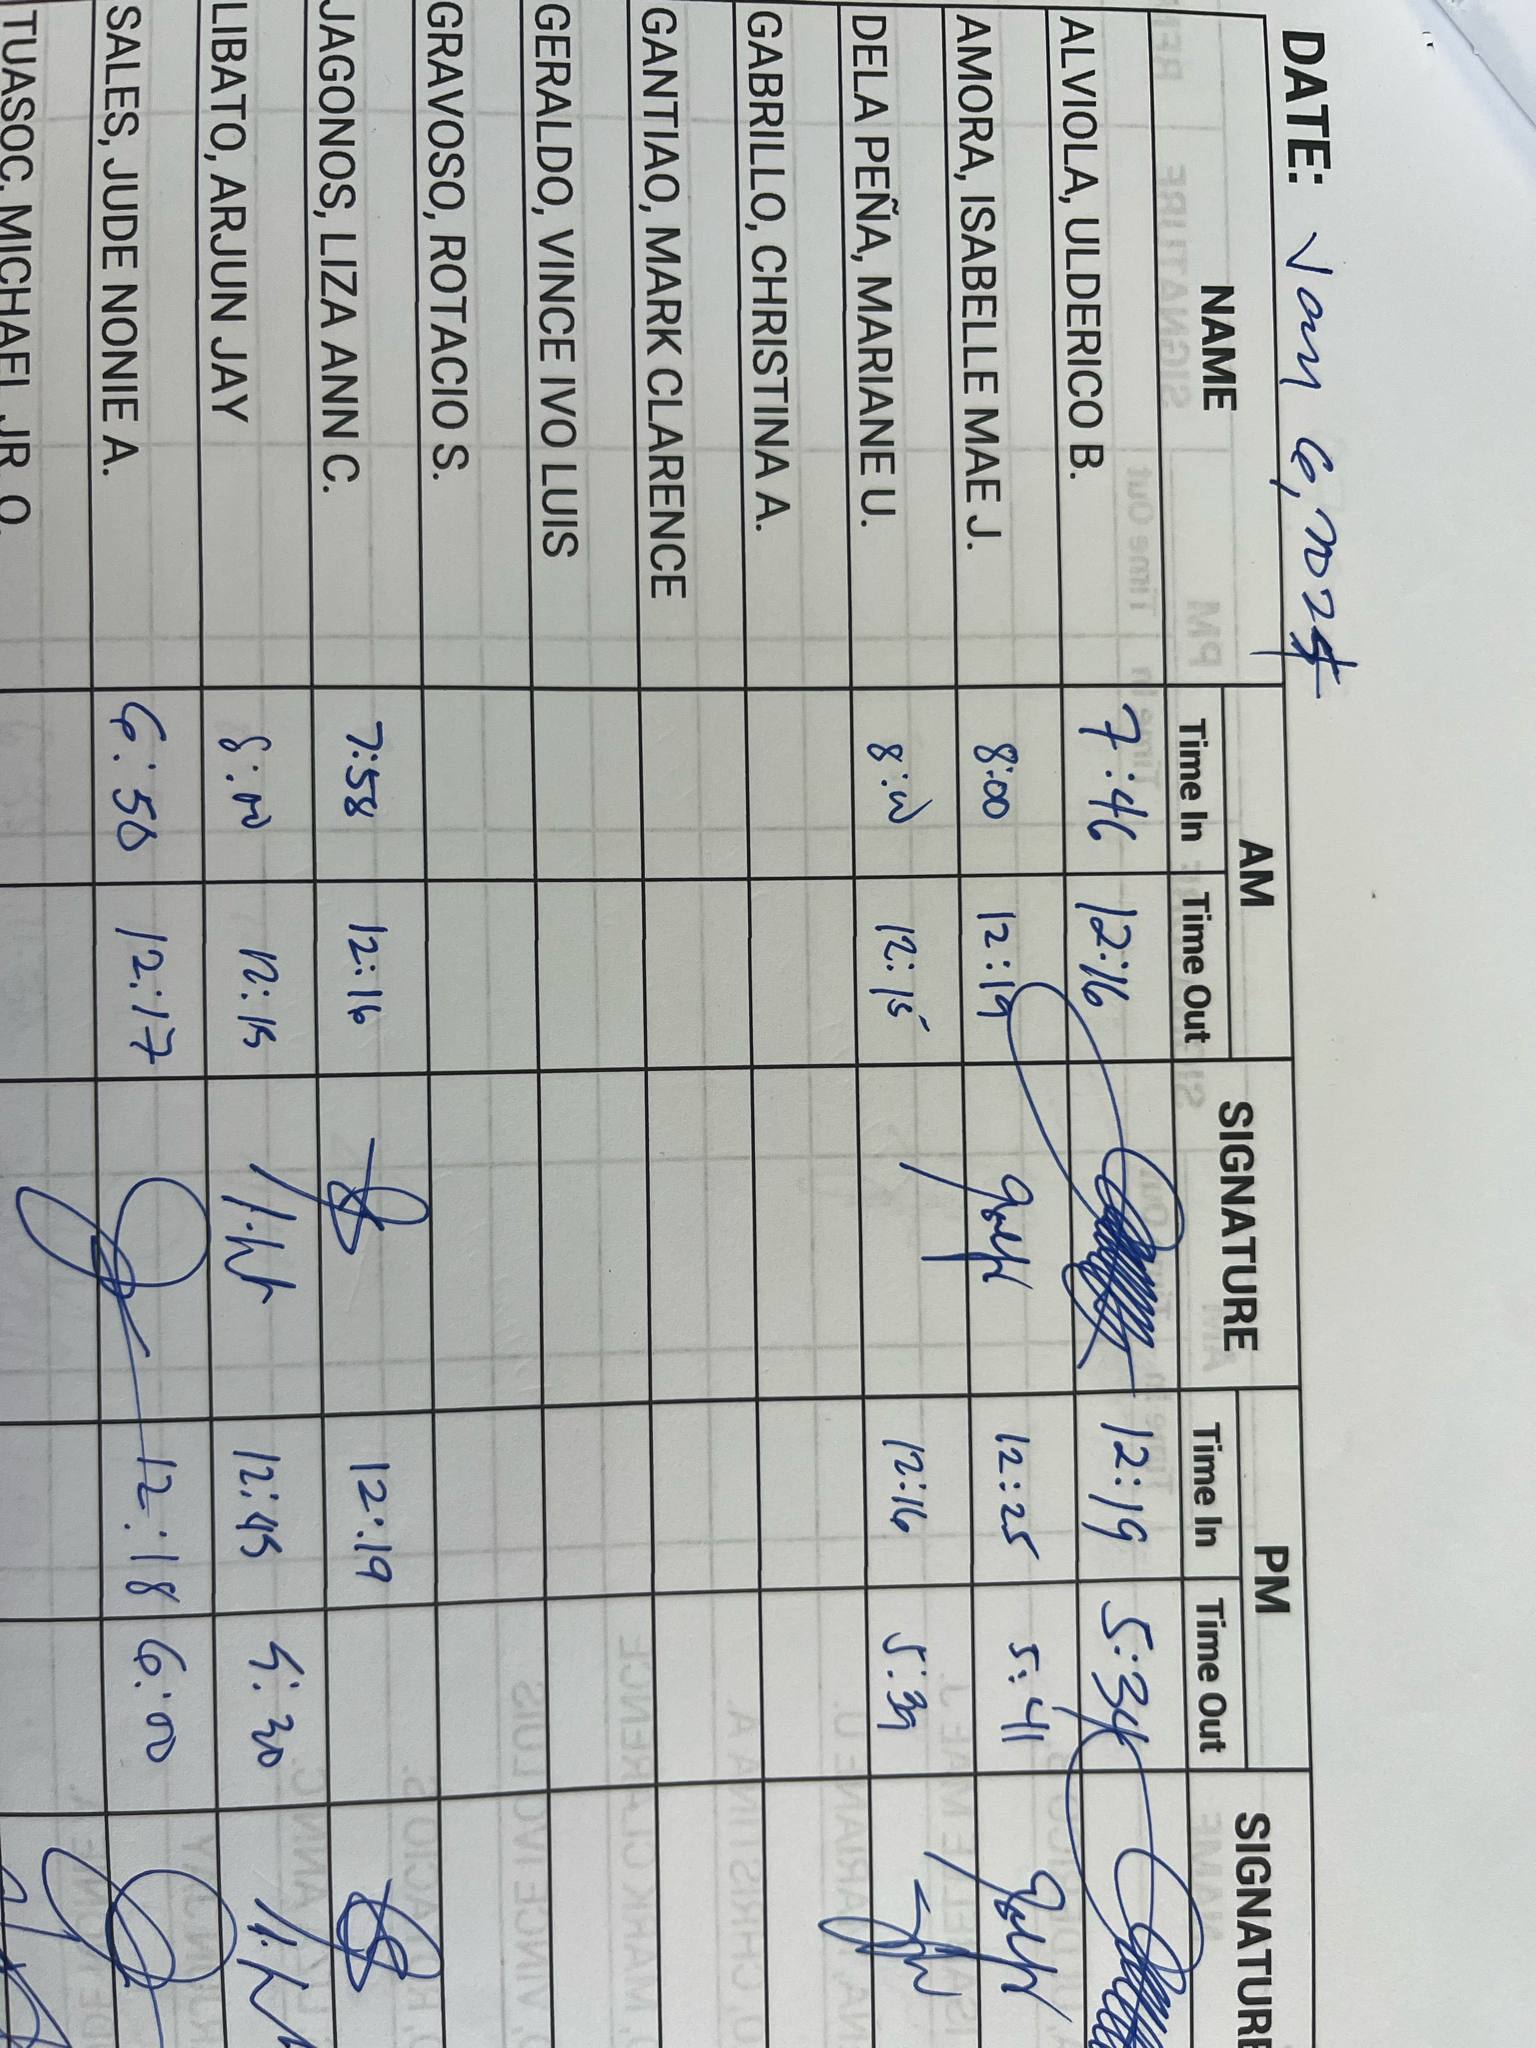 DATE: Jan 6, 2025
NAME AM SIGNATURE PM SIGNATURE
Time In Time Out Time In Time Out
ALVIOLA, ULDERICO B. 7:46 12:16 12:19 5:34
AMORA, ISABELLE MAE J. 8:00 12:19 12:25 5:41
DELA PEÑA, MARIANE U. 8:00 12:15 12:16 5:39
GABRILLO, CHRISTINA A.
GANTIAO, MARK CLARENCE
GERALDO, VINCE IVO LUIS
GRAVOSO, ROTACIO S.
JAGONOS, LIZA ANN C. 7:58 12:16 12:19
LIBATO, ARJUN JAY 8:00 12:15 12:45 5:30
SALES, JUDE NONIE A. 6:50 12:17 12:18 6:00
TUASOC, MICHAEL JR. O.